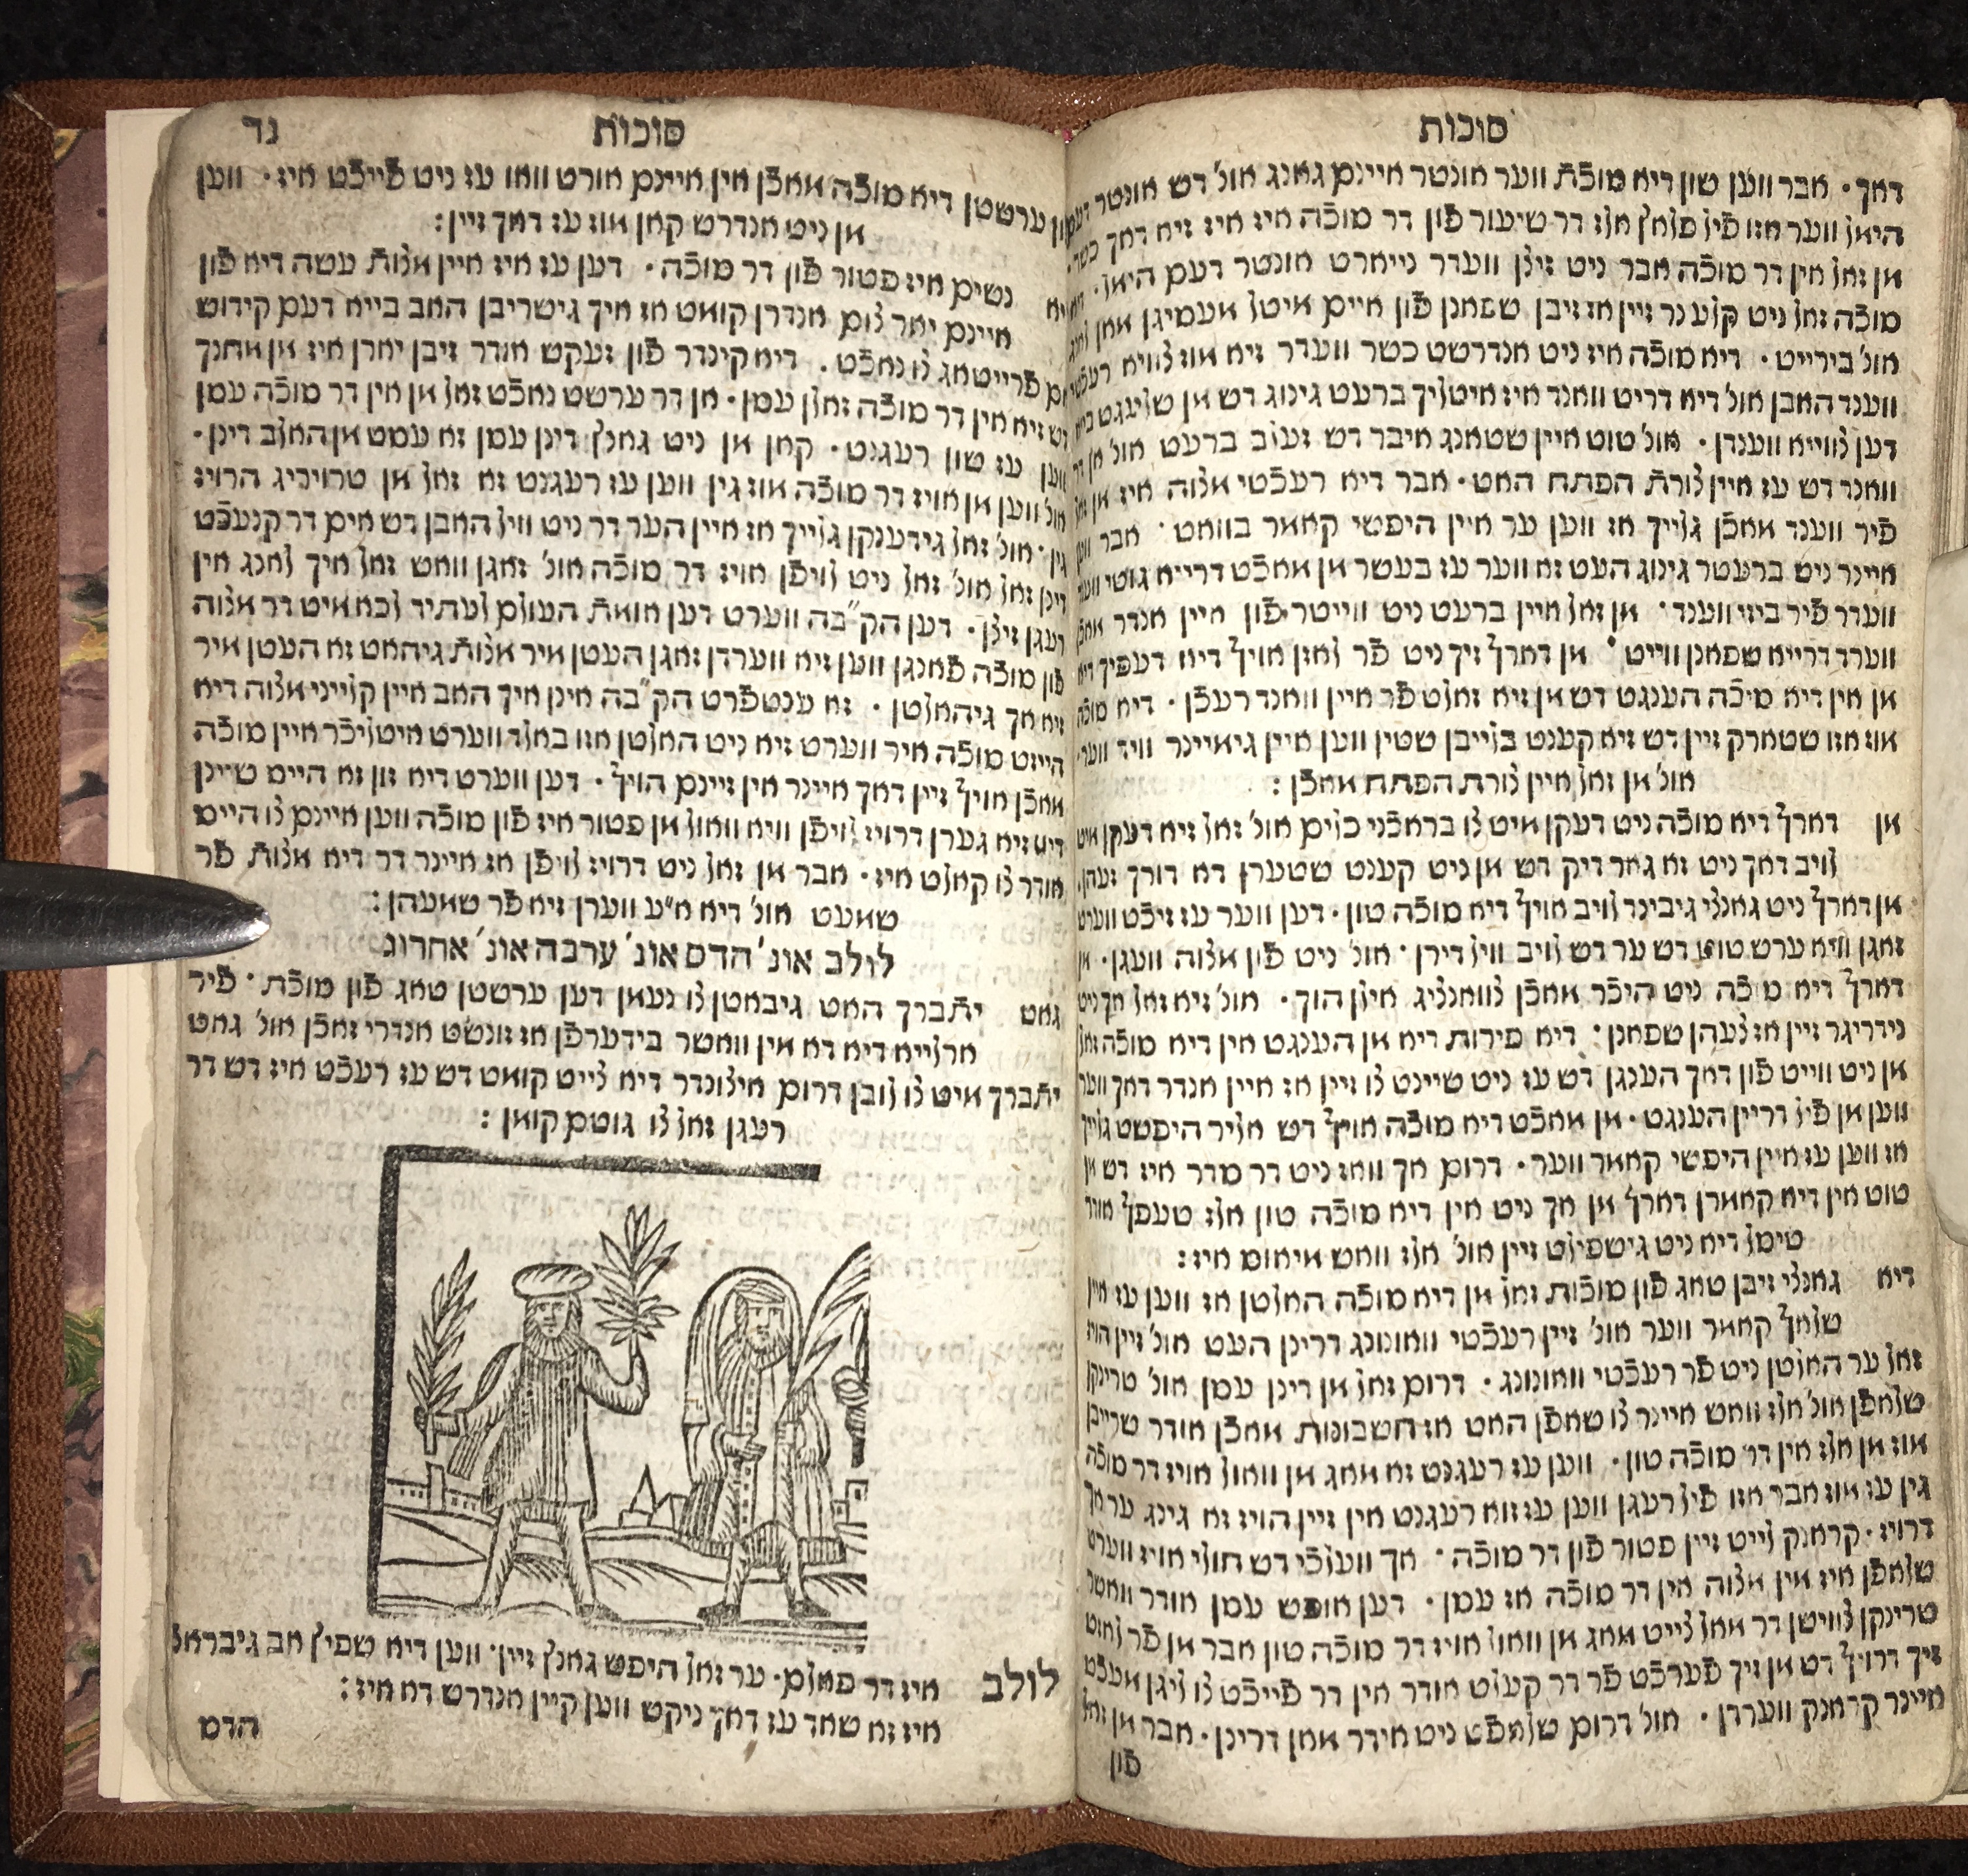 סוכות
דאך · אבר ווען טון דיא סוכֿה ווער אונטר איינס גאנג אול' דש אונטר
היאל ווער אזו פֿיל אלז דר שיעור פֿון דר סוכֿה איז איז זיא דאך כשר
אן זאל אין דר סוכֿה אבר ניט זיצן ווערר נייארט אונטר דעם היאל
סוכֿה זאל ניט קלענר זיין אז זיבן טפֿאכן פֿון איים
אונ' בירייט · דיא סוכֿה איז ניט אנדרשט כשר ווערר זיא אוז צווייא
ווענד האבן אונ' דיא דריט וואנד איז מיטליך ברעט גינוג דש מן
דען צווייא ווענדן · אונ' טוט איין שטאנג איבר דש זעלב ברעט
וואנד דש עז איין צורת הפתח האט · אבר דיא רעכֿטי מצוה איז מן
פֿיר ווענד מאכֿן גלייך אז ווען ער איין היפשי קאמר בוואט · אבר
איינר ניט ברעטר גינוג העט זא ווער עז בעשר מן מאכֿט דרייא גוטי
ווערר פֿיר ביזי ווענד · מן זאל איין ברעט ניט ווייטר פֿון איין אנדר
ווערד דרייא טפֿאכן ווייט · מן דארף זיך ניט פֿר לאזן אויף דיא דעפיך
מן אין דיא סוכֿה הענגט דש מן זיא זאלט פֿר איין וואנד רעכֿן · דיא
מוז אזו שטארק זיין דש זיא קענט בלייבן שטין ווען איין גימיינר ווינד
אונ' מן זאל איין צורת הפתח מאכֿן :
מן דארף דיא סוכֿה ניט דעקן מיט צו בראכֿני כלים אונ' זאל זיא דעקן מיט
לויב דאך ניט זא גאר דיק דש מן ניט קענט שטערן דא דורך זעהן
מן דארף ניט גאנצי גיבינד לויב אויף דיא סוכֿה טון · דען ווער עז זיכֿט
זאגן וויא ערשט טוט ער דש לויב וויל דירן · אונ' ניט פֿון מצוה וועגן ·
דארף דיא סוכֿה ניט היכֿר מאכֿן צוואנציג אילן הוך · אונ' זיא זאל אך ניט
נידריגר זיין אז צעהן טפֿאכן : דיא פירות דיא מן הענגט אין דיא סוכֿה זאל
מן ניט ווייט פֿון דאך הענגן דש עז ניט שיינט צו זיין אז איין אנדר דאך ווער
ווען מן פֿיל דריין הענגט · מן מאכֿט דיא סוכֿה אויף דש אליר היפשט גלייך
אז ווען עז איין היפשי קאמר ווער · דרום אך וואז ניט דר סדר איז דש מן
טוט אין דיא קאמרן דארף מן אך ניט אין דיא סוכֿה טון אלז טעפף אודר
טיסל דיא ניט גישפילט זיין אונ' אלז וואש מיאוס איז :
דיא גאנצי זיבן טאג פֿון סוכות זאל מן דיא סוכֿה האלטן אז ווען עז איין
שלאף קאמר ווער אונ' זיין רעכֿטי וואונונג דרינן העט אונ' זיין הויז
זאל ער האלטן ניט פֿר רעכֿטי וואונונג · דרום זאל מן דינן עסן אונ' טרינקן
שלאפֿן אונ' אלז וואש איינר צו שאפֿן האט אז חשבונות מאכֿן אודר שרייבן
מוז מן אלז אין דר סוכֿה טון · ווען עז רעגנט זא מאג מן וואול אויז דר סוכֿה
גין עז מוז אבר אזו פֿיל רעגן ווען עז זוא רעגנט אין זיין הויז זא גינג ער אך
דרויז · קראנק לייט זיין פטור פֿון דר סוכֿה · אך וועלכֿי דש חולי אויז ווערט
שלאפֿן איז אין מצוה אין דר סוכֿה אז עסן · דען אופֿט עסן אודר וואשר
טרינקן צווישן דר מאל צייט מאג מן וואול אויז דר סוכֿה טון אבר מן פֿר לאזט
זיך דרויף דש מן זיך פֿערכֿט פֿר דר קעלט אודר אין דר פֿייכֿט צו ליגן מעכֿט
איינר קראנק ווערדן · אונ' דרום שלאפֿט ניט אידר מאן דרינן · אבר מן זאל
פֿון
סוכות נד
פֿון ערשטן דיא סוכֿה מאכֿן אין איינם אורט וואו עז ניט פֿייכֿט איז · ווען
מן ניט אנדרש קאן מוז עז דאך זיין :
דיא נשים איז פטור פֿון דר סוכֿה · דען עז איז איין מצות עשה דיא פֿון
איינם יאר צום אנדרן קומט אז איך גישריבן האב בייא דעם קידוש
אם פֿרייטאג צו נאכֿט · דיא קינדר פֿון זעקש אודר זיבן יארן איז מן מחנך
דש זיא אין דר סוכֿה זאלן עסן · אן דר ערשט נאכֿט זאל מן אין דר סוכֿה עסן
ווען עז שון רעגנט · קאן מן ניט גאנץ דינן עסן זא עסט מן האלב דינן ·
אונ' ווען מן אויז דר סוכֿה מוז גין ווען עז רעגנט זא זאל מן טרויריג הרויז
גין · אונ' זאל גידענקן גלייך אז איין הער דר ניט וויל האבן דש אים דר קנעכֿט
דינן זאל אונ' זאל ניט לויפֿן אויז דר סוכֿה אונ' זאגן וואש זאל איך לאנג אין
רעגן זיצן · דען הק"בה ווערט דען אומות העולם לעתיד לבא מיט דר מצוה
פֿון סוכֿה פֿאנגן ווען זיא ווערדן זאגן העטן מיר מצות גיהאט זא העטן מיר
זיא אך גיהאלטן · זא ענטפֿרט הק"בה אינן איך האב איין קלייני מצוה דיא
הייסט סוכֿה איר ווערט זיא ניט האלטן אזו באלד ווערט איטליכֿר איין סוכֿה
מאכֿן אויף זיין דאך איינר אין זיינם הויף · דען ווערט דיא זון זא הייס שיינן
דש זיא גערן דרויז לויפֿן וויא וואול מן פטור איז פֿון סוכֿה ווען איינם צו הייס
אודר צו קאלט איז · אבר מן זאל ניט דרויז לויפֿן אז איינר דר דיא מצות פֿר
שמעט אונ' דיא א"ע ווערן זיא פֿר שמעהן :
לולב אונ' הדס אונ' ערבה אונ' אתרוג
גאט יתברך האט גיבאטן צו נעמן דען ערשטן טאג פֿון סוכֿת · פֿיר
ארלייא דיא דא אין וואשר בידערפֿן אז זונשט אנדרי זאכֿן אונ' גאט
יתברך מיט צו לובן דרום איצונדר דיא צייט קומט דש עז רעכֿט איז דש דר
רעגן זאל צו גוטס קומן :
לולב איז דר פאלם · ער זאל היפש גאנץ זיין · ווען דיא שפיץ אב גיבראכֿ
איז זא שאד עז דאך ניקש ווען קיין אנדרש דא איז :
הדס